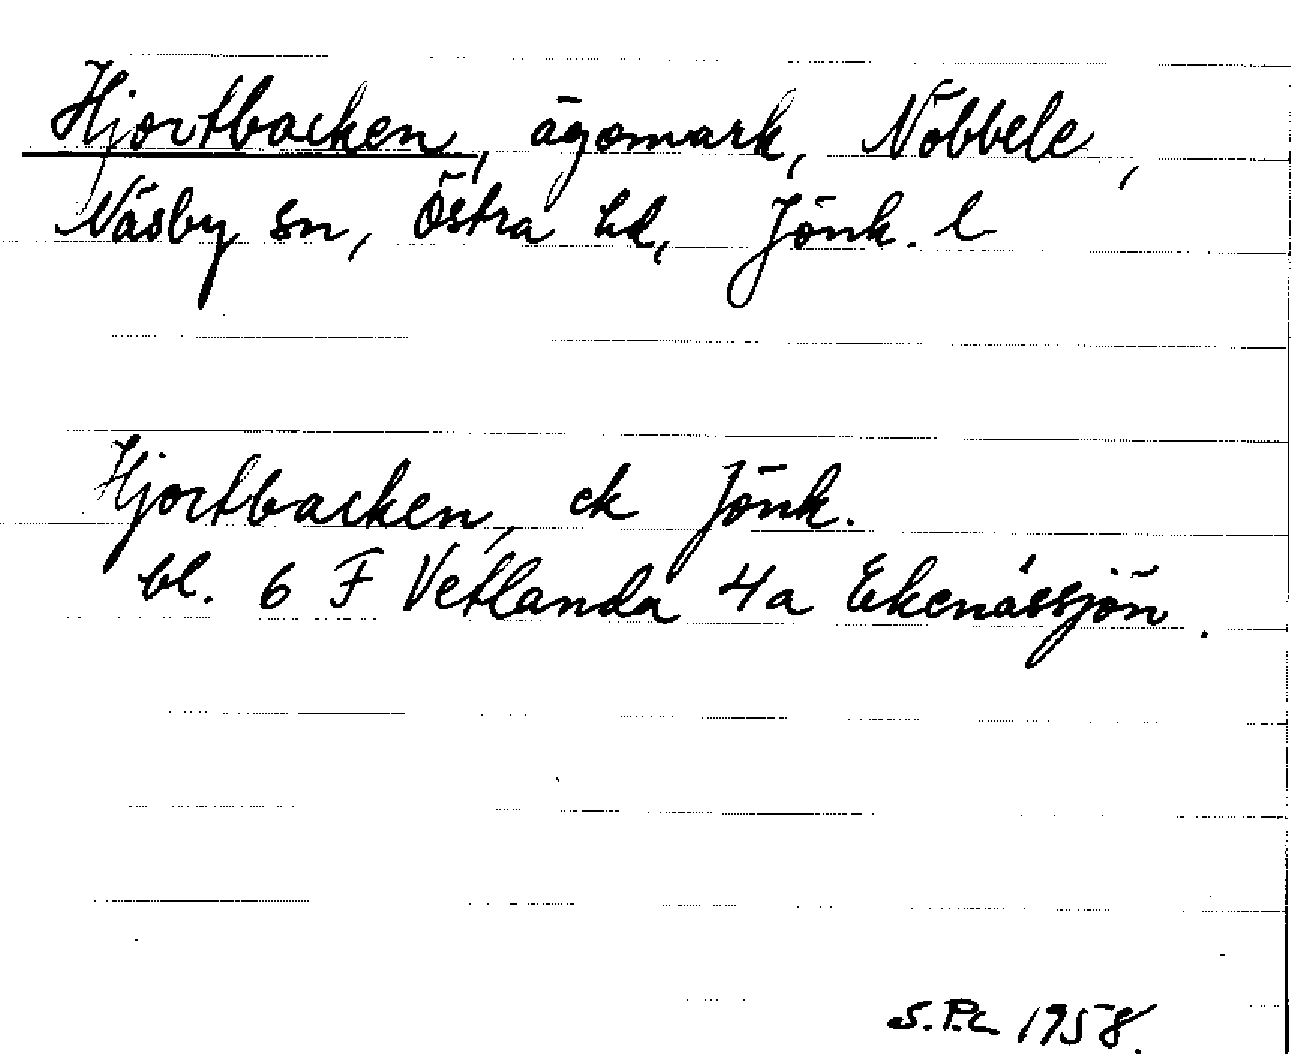 Hjortbacken, ägomark, Nöbbele,
Näsby sn, Östra hd, Jönk. l
Hjortbacken, ek Jönk.
bl. 6 F Vetlanda 4a Ekenässjön.
S.P.L 1958.